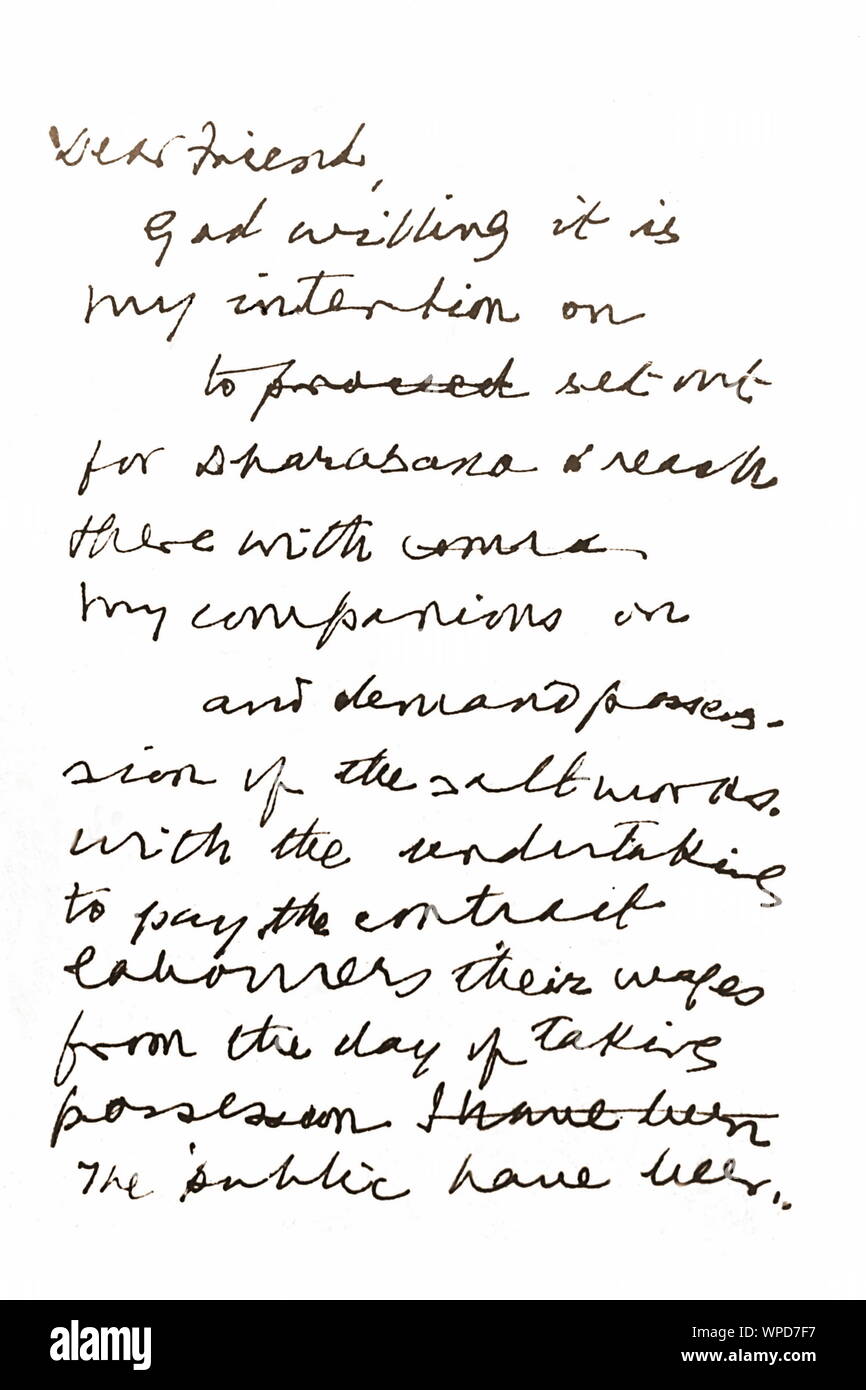 Dear Friend,
God willing it is
my intention on
to proceed set out
for Dharasana & reach
there with comra
my companions on
and demand posses-
sion of the salt works.
with the undertaking
to pay the contract
labourers their wages
from the day of taking
possession I have been
The public have been..
alamy
a
alamy
Image ID: WPD7F7
www.alamy.com